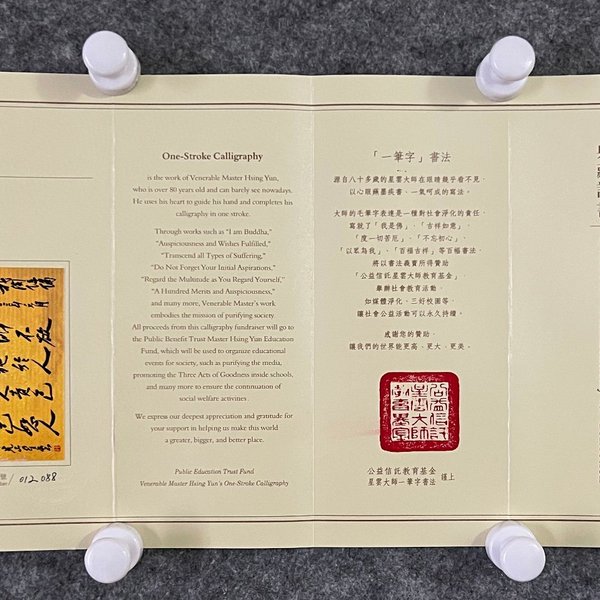 One-Stroke Calligraphy
is the work of Venerable Master Hsing Yun,
who is over 80 years old and can barely see nowadays.
He uses his heart to guide his hand and completes his
calligraphy in one stroke.
Through works such as "I am Buddha,"
"Auspiciousness and Wishes Fulfilled,"
"Transcend all Types of Suffering,"
"Do Not Forget Your Initial Aspirations,"
"Regard the Multitude as You Regard Yourself,"
"A Hundred Merits and Auspiciousness,"
and many more, Venerable Master's work
embodies the mission of purifying society.
All proceeds from this calligraphy fundraiser will go to
the Public Benefit Trust Master Hsing Yun Education
Fund, which will be used to organize educational
events for society, such as purifying the media,
promoting the Three Acts of Goodness inside schools,
and many more to ensure the continuation of
social welfare activities .
We express our deepest appreciation and gratitude for
your support in helping us make this world
a greater, bigger, and better place.
Public Education Trust Fund
Venerable Master Hsing Yun's One-Stroke Calligraphy
「一筆字」書法
源自八十多歲的星雲大師在眼睛幾乎看不見,
以心眼蘸墨疾書、一氣呵成的寫法。
大師的毛筆字表達是一種對社會淨化的責任,
寫就了「我是佛」、「吉祥如意」、
「度一切苦厄」、「不忘初心」、
「以眾為我」、「百福吉祥」等百福書法,
將以書法義賣所得贊助
「公益信託星雲大師教育基金」,
舉辦社會教育活動,
如媒體淨化、三好校園等,
讓社會公益活動可以永久持續。
感謝您的贊助,
讓我們的世界能更高、更大、更美。
公益信託
星雲大師
教育基金
公益信託教育基金
星雲大師一筆字書法 謹上
012088